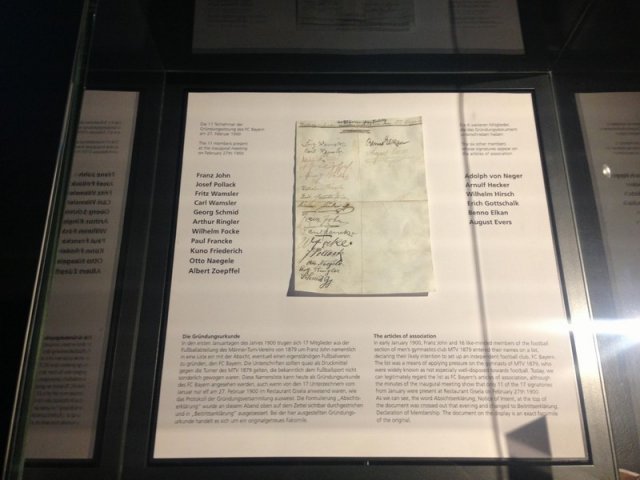 Die 11 Teilnehmer der
Gründungssitzung des FC Bayern
am 27. Februar 1900
The 11 members present
at the inaugural meeting
on February 27th 1900
Franz John
Josef Pollack
Fritz Wamsler
Carl Wamsler
Georg Schmid
Arthur Ringler
Wilhelm Focke
Paul Francke
Kuno Friederich
Otto Naegele
Albert Zoepffel
weiteren Mitglieder,
das Gründungsdokument
unterschrieben haben
six other members
whose signatures appear on
the articles of association
Adolph von Neger
Arnulf Hecker
Wilhelm Hirsch
Erich Gottschalk
Benno Elkan
August Evers
Die Gründungsurkunde
In den ersten Januartagen des Jahres 1900 trugen sich 17 Mitglieder aus der
Fußballabteilung des Männer-Turn-Vereins von 1879 um Franz John namentlich
in eine Liste ein mit der Absicht, eventuell einen eigenständigen Fußballverein
zu gründen, den FC Bayern. Die Unterschriften sollten quasi als Druckmittel
gegen die Turner des MTV 1879 gelten, die bekanntlich dem Fußballsport nicht
sonderlich gewogen waren. Diese Namensliste kann heute als Gründungsurkunde
des FC Bayern angesehen werden, auch wenn von den 17 Unterzeichnern vom
Januar nur elf am 27. Februar 1900 im Restaurant Gisela anwesend waren, wie
das Protokoll der Gründungsversammlung ausweist. Die Formulierung „Absichts-
erklärung" wurde an diesem Abend oben auf dem Zettel sichtbar durchgestrichen
und in „Beitrittserklärung" ausgebessert. Bei der hier ausgestellten Gründungs-
urkunde handelt es sich um ein originalgetreues Faksimile.
The articles of association
In early January 1900, Franz John and 16 like-minded members of the football
section of men's gymnastics club MTV 1879 entered their names on a list,
declaring their likely intention to set up an independent football club, FC Bayern.
The list was a means of applying pressure on the gymnasts of MTV 1879, who
were widely known as not especially well-disposed towards football. Today, we
can legitimately regard the list as FC Bayern's articles of association, although
the minutes of the inaugural meeting show that only 11 of the 17 signatories
from January were present at Restaurant Gisela on February 27th 1900.
As we can see, the word Absichtserklärung, Notice of Intent, at the top of
the document was crossed out that evening and changed to Beitrittserklärung,
Declaration of Membership. The document on the display is an exact facsimile
of the original.